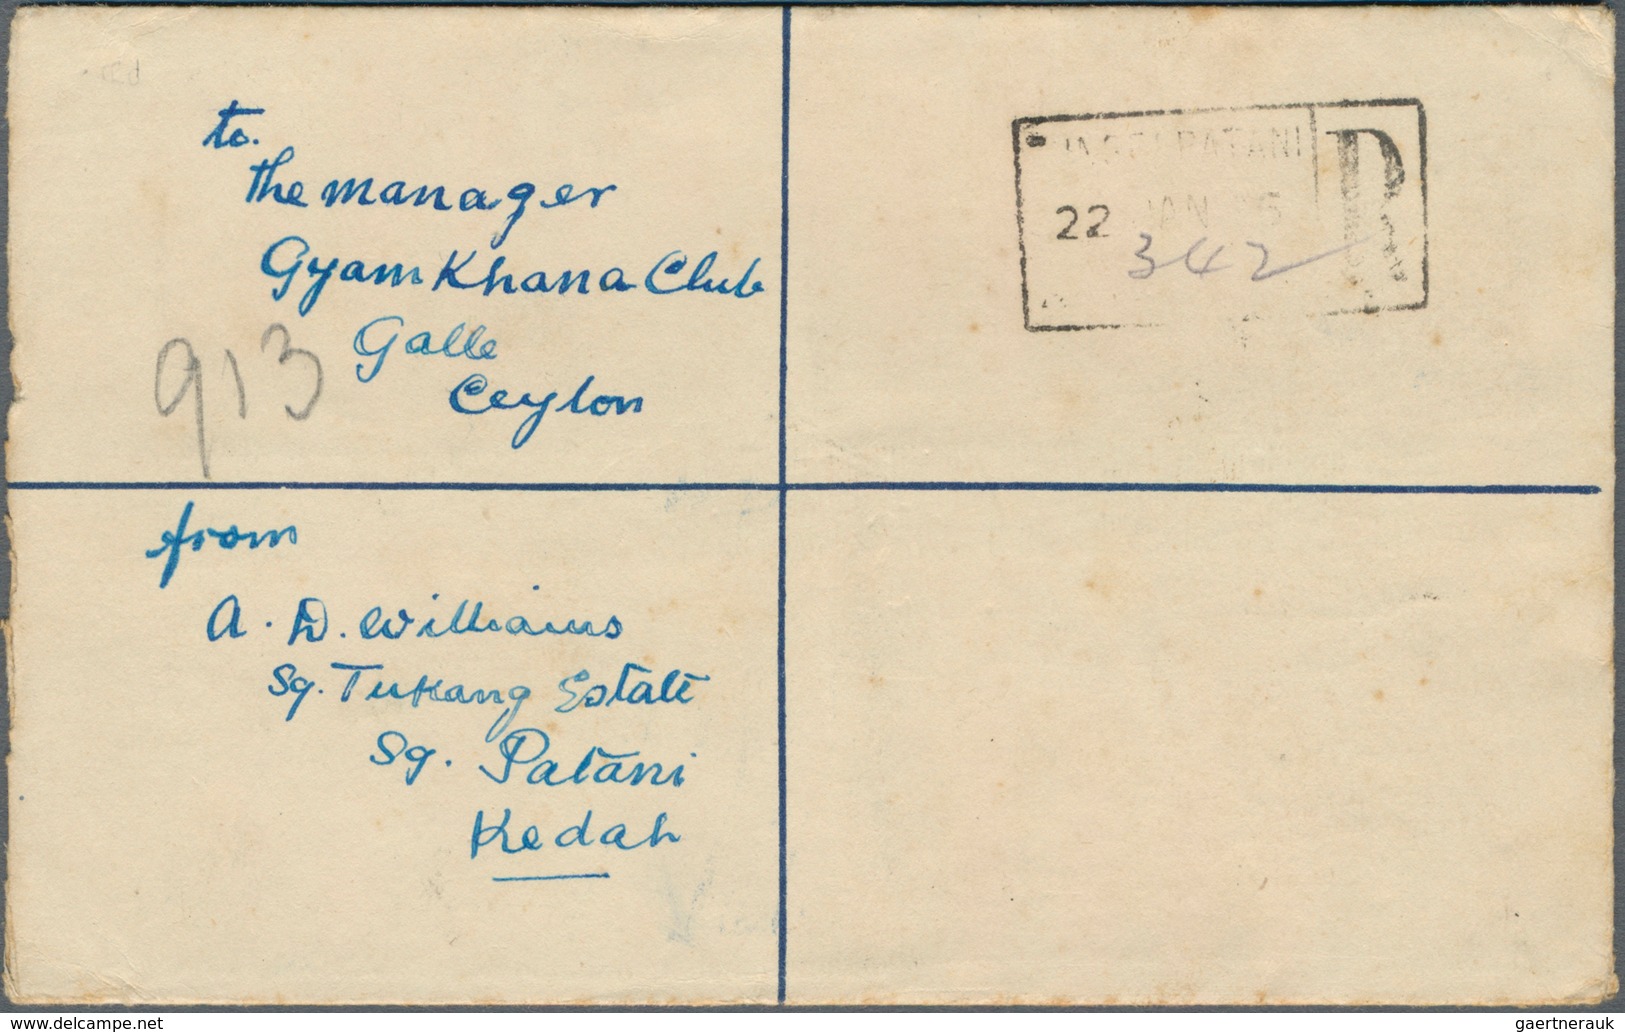 to.
the manager
Gyam Khana Club
Galle
Ceylon
913
22 JAN
342
R
from
A. D. Williams
Sg. Tukang Estate
Sg. Patani
Kedah
www.delcampe.net
gaertnerauk